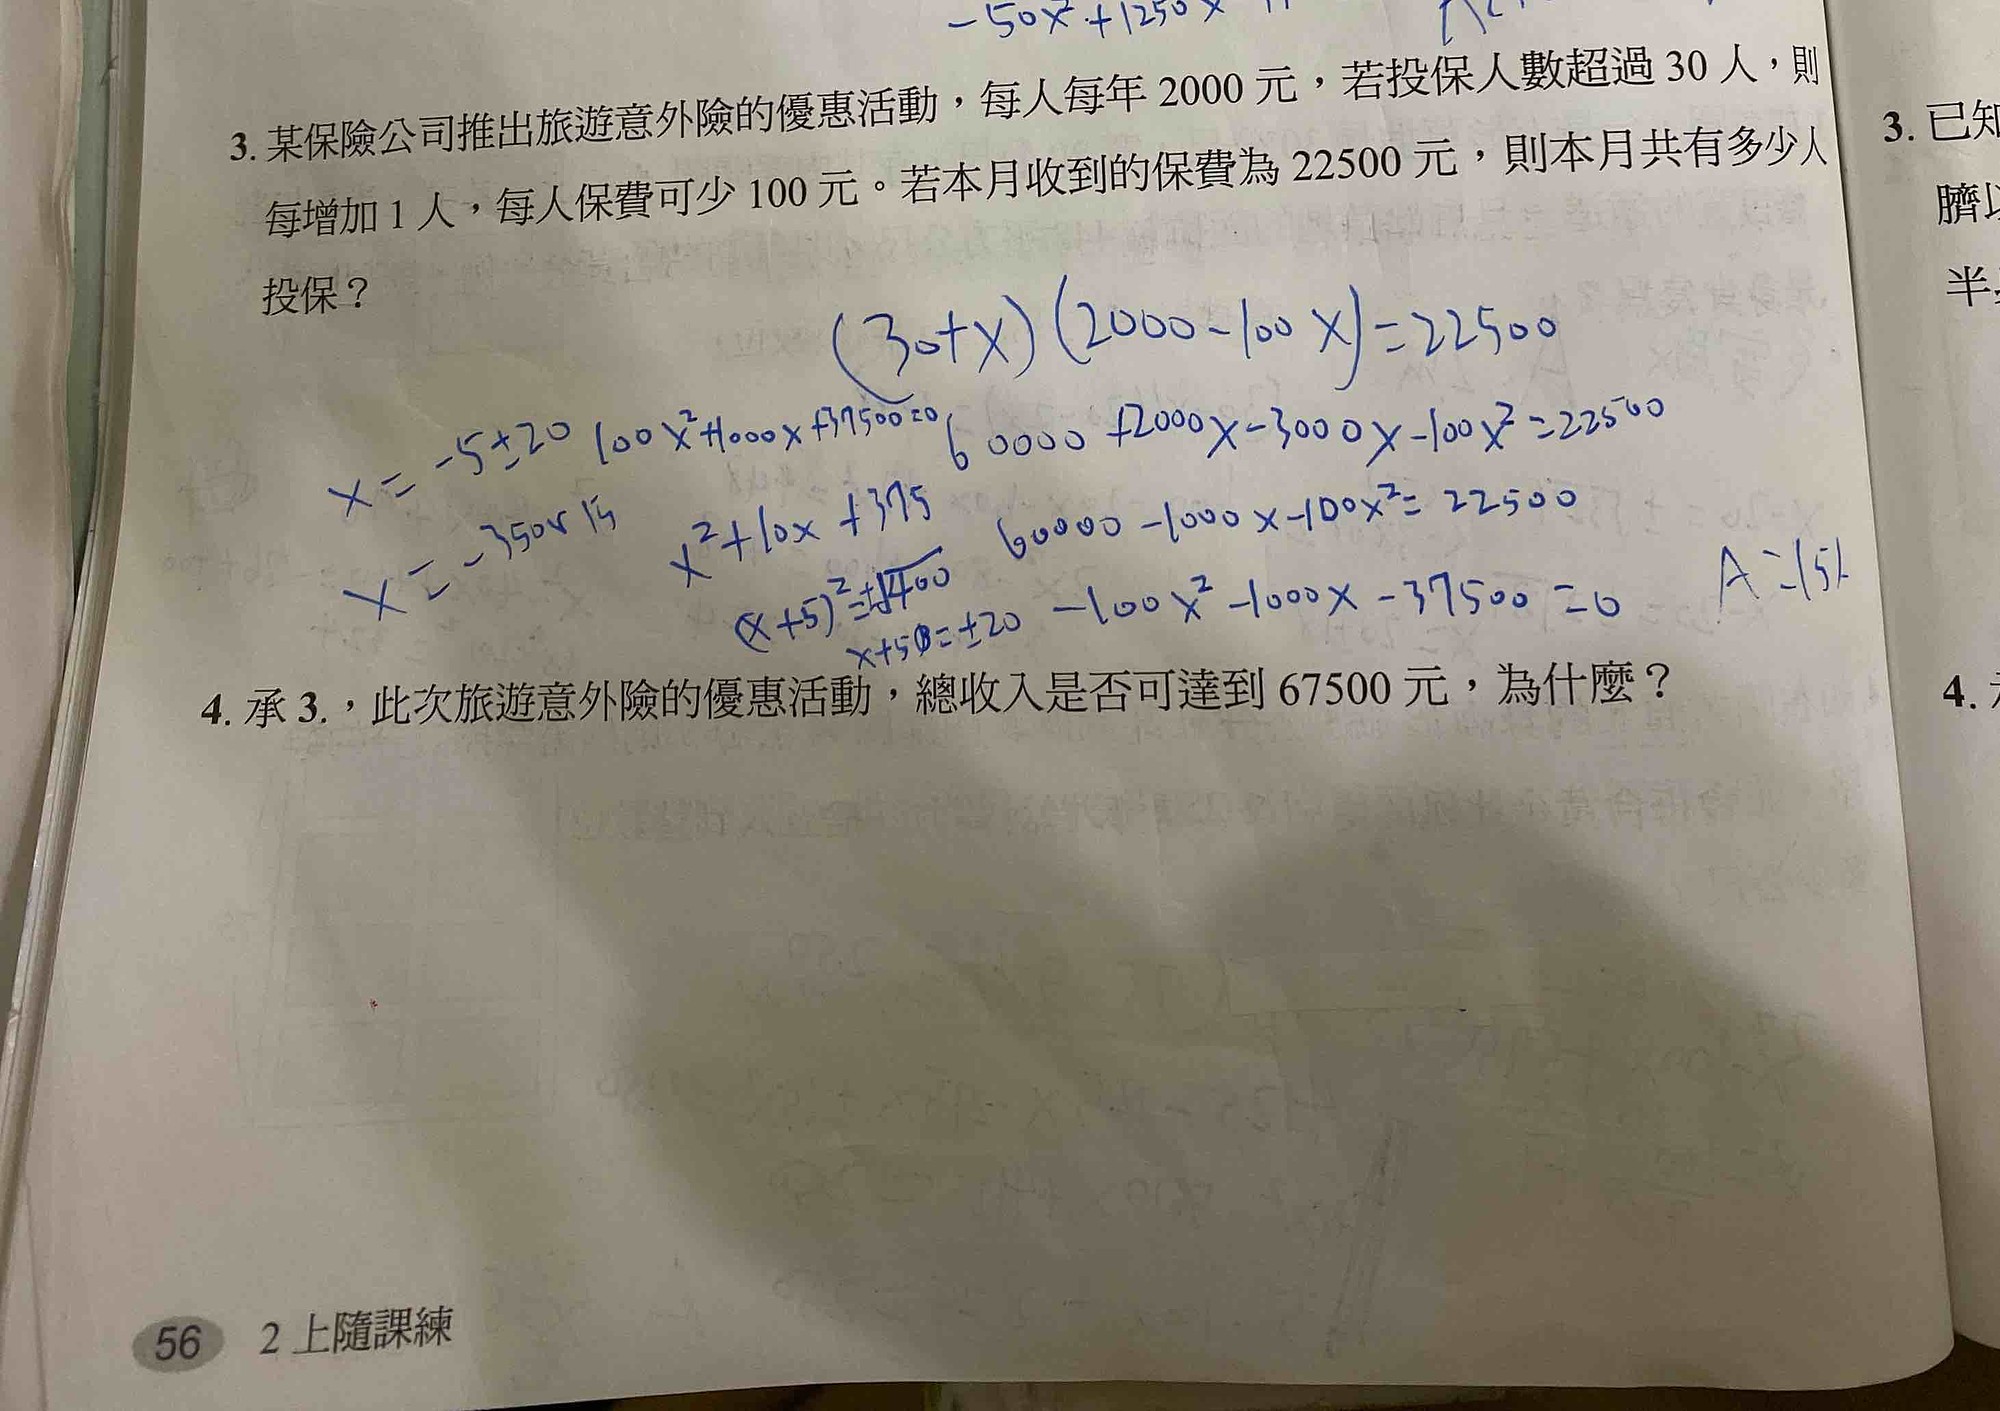 -50x²+1250x
3. 某保險公司推出旅遊意外險的優惠活動，每人每年 2000 元，若投保人數超過 30 人，則
每增加 1 人，每人保費可少 100 元。若本月收到的保費為 22500 元，則本月共有多少人
投保？
(30+x)(2000-100x)=22500
60000+2000x-3000x-100x²=22500
60000-1000x-100x²=22500
-100x²-1000x-37500=0
100x²+1000x+37500=0
x²+10x+375
(x+5)²=±√400
x+5=±20
x=-5±20
x=-35or15
A=15人
4. 承 3.，此次旅遊意外險的優惠活動，總收入是否可達到 67500 元，為什麼？
56 2 上隨課練
3. 已知
臍以
半
4.